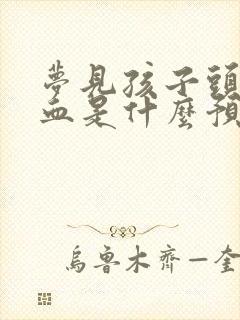 夢見孩子頭
血是什麼預
烏魯木齊—奎